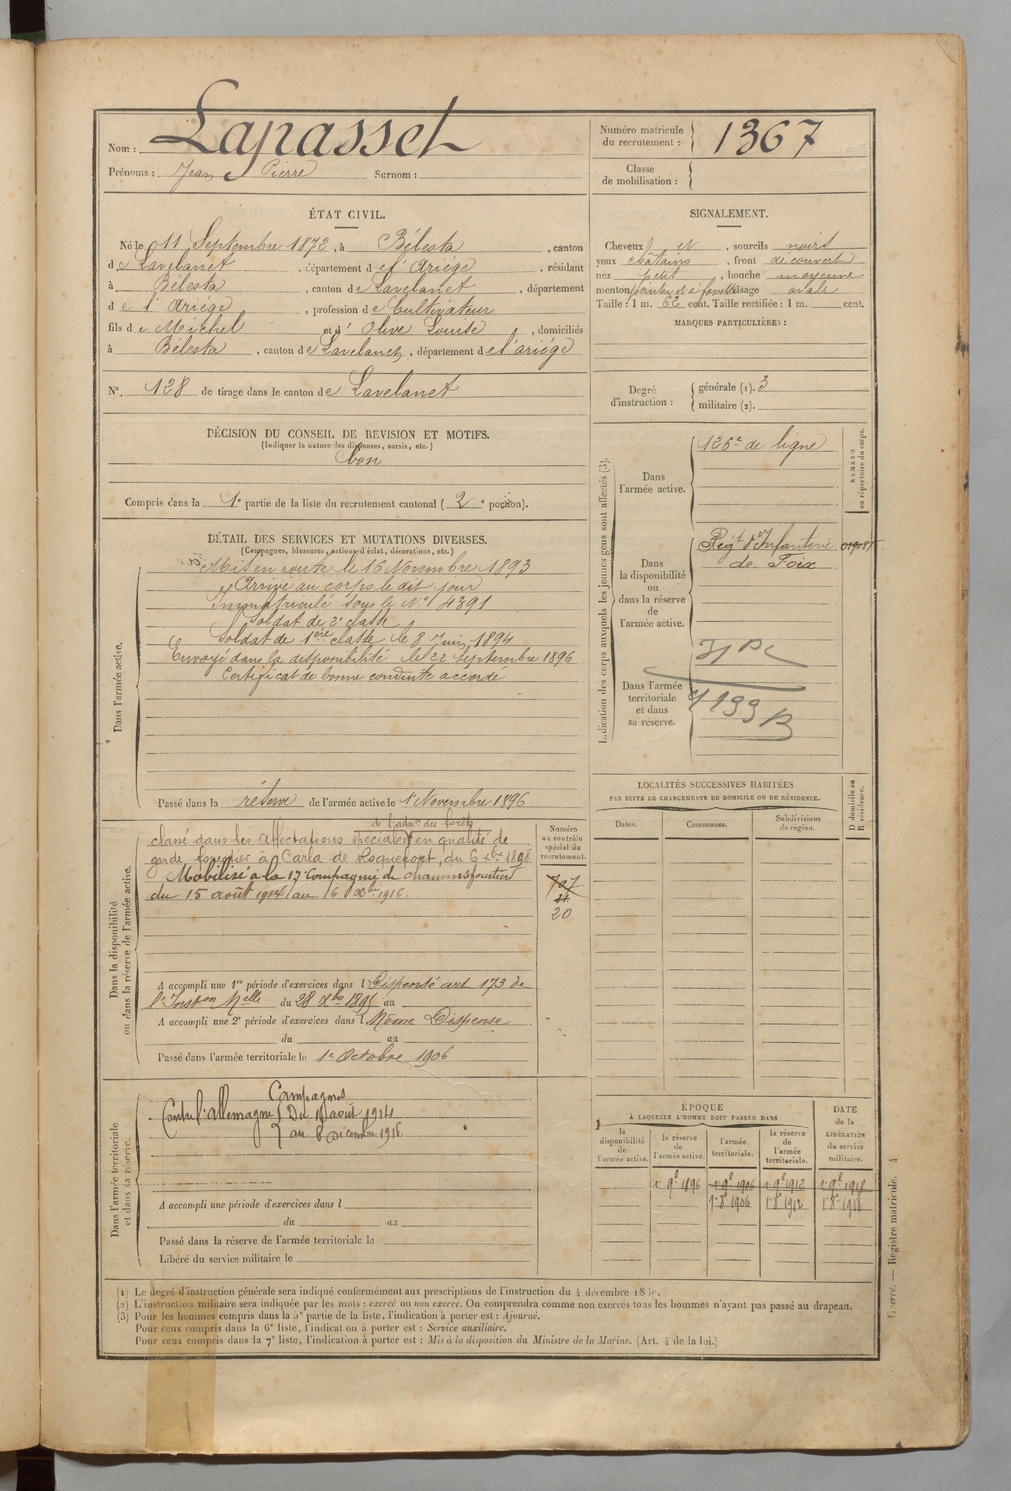 Nom : Lapasset
Prénoms : Jean Pierre Surnom :
Numéro matricule du recrutement : 1367
Classe de mobilisation :
ÉTAT CIVIL.
Né le 11 Septembre 1872, à Bélesta, canton
de Lavelanet, département de l'Ariége, résidant
à Bélesta, canton de Lavelanet, département
de l'Ariége, profession de Cultivateur
fils de Michel et d'Olive Louise, domiciliés
à Bélesta, canton de Lavelanet, département de l'ariége
No. 128 de tirage dans le canton de Lavelanet
SIGNALEMENT.
Cheveux et, sourcils noirs
yeux châtains, front découvert
nez petit, bouche moyenne
menton pointu et à visage ovale
Taille : 1 m. 62 cent. Taille rectifiée : 1 m. cent.
MARQUES PARTICULIÈRES :
Degré d'instruction :
générale (1). 3
militaire (2).
DÉCISION DU CONSEIL DE REVISION ET MOTIFS.
(Indiquer la nature des dispenses, sursis, etc.)
bon
Compris dans la 1e partie de la liste du recrutement cantonal (2e portion).
DÉTAIL DES SERVICES ET MUTATIONS DIVERSES.
(Campagnes, blessures, actions d'éclat, décorations, etc.)
Dans l'armée active.
Mis en route le 16 Novembre 1893
Arrivé au corps le dit jour
Immatriculé sous le No 4391
Soldat de 2e classe
Soldat de 1ère classe le 8 Juin 1894
Envoyé dans la disponibilité le 22 Septembre 1896
Certificat de bonne conduite accordé
Passé dans la réserve de l'armée active le 1r Novembre 1896
Indication des corps auxquels les jeunes gens sont affectés (3).
NUMÉRO au répertoire du corps.
Dans l'armée active.
126e de ligne
Dans la disponibilité ou dans la réserve de l'armée active.
Régt d'Infanterie
de Foix
Dans l'armée territoriale et dans sa réserve.
LOCALITÉS SUCCESSIVES HABITÉES
PAR SUITE DE CHANGEMENTS DE DOMICILE OU DE RÉSIDENCE.
Dates. Communes. Subdivisions de région. D domicile ou R résidence.
Dans la disponibilité ou dans la réserve de l'armée active.
de l'admon des forêts
classé dans les affectations spéciales en qualité de
garde forestier à Carla de Roquefort, du 6 xbre 1898
Mobilisé à la 17e Compagnie de chasseurs forestiers
du 15 août 1914 au 6 Xbre 1916.
Numéro au contrôle spécial du recrutement.
707
20
A accompli une 1re période d'exercices dans l Dispensé art 173 de
l'Inston Melle du 28 Xbre 1895 au
A accompli une 2e période d'exercices dans l Même Dispense
du au
Passé dans l'armée territoriale le 1er Octobre 1906
Dans l'armée territoriale et dans sa réserve.
Campagnes
Contre l'allemagne { Du août 1914
au 6 Décembre 1916.
A accompli une période d'exercices dans l
du au
Passé dans la réserve de l'armée territoriale le
Libéré du service militaire le
ÉPOQUE
À LAQUELLE L'HOMME DOIT PASSER DANS
DATE de la LIBÉRATION du service militaire.
la disponibilité de l'armée active. la réserve de l'armée active. l'armée territoriale. la réserve de l'armée territoriale.
1r 9e 1896 1r 9e 1906 1r 9e 1912 1r 9e 1918
1r 8e 1906 1r 8e 1912 1r 8e 1918
(1) Le degré d'instruction générale sera indiqué conformément aux prescriptions de l'instruction du 4 décembre
(2) L'instruction militaire sera indiquée par les mots : exercé ou non exercé. On comprendra comme non exercés tous les hommes n'ayant pas passé au drapeau.
(3) Pour les hommes compris dans la 5e partie de la liste, l'indication à porter est : Ajourné.
Pour ceux compris dans la 6e liste, l'indication à porter est : Service auxiliaire.
Pour ceux compris dans la 7e liste, l'indication à porter est : Mis à la disposition du Ministre de la Marine. (Art. 4 de la loi.)
Guerre. — Registre matricule. 4